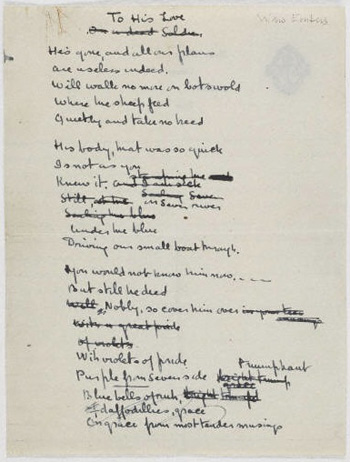 To His Love
On a dead Soldier.
Hes gone, and all our plans
are useless indeed.
Will walk no more on Cotswold
Where the sheep feed
Quietly and take no heed
His body, that was so quick
Is not as you
Knew it, and I am sick
Still, on Severn river
Under the blue
Driving our small boat through.
You would not know him now....
But still he died
Well, Nobly, so cover him over in your
With a great pride
Of violets
With violets of pride Triumphant
Purple from Severn side
Blue bells
of daffodillies, grace
Or grace from most tender musings